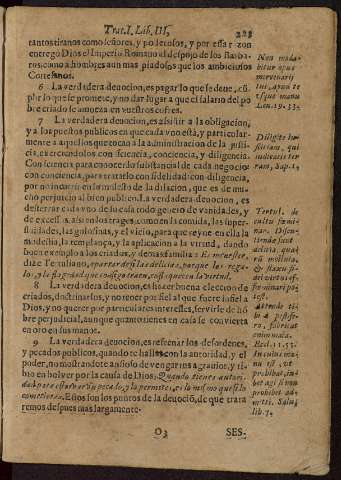 Trat. I. Lib. III.
tantos tiranos como señores, y poderosos, y por esta razon
entregó Dios el Imperio Romano al despojo de los Barba-
ros: como a hombres aun mas piadosos que los ambiciosos
Cortesanos.
6 La verdadera deuocion, es pagar lo que se deue, cũ-
plir lo que se promete, y no dar lugar a que el salario del po
bre criado se amoneza en vuestros cofres.
7 La verdadera deuocion, es asistir a la obligacion,
y a los puestos publicos en que cada vno está, y particular-
mente a aquellos que tocan a la administracion de la justi-
cia, exerciendolos con sciencia, conciencia, y diligencia.
Con sciencia, para conocer lo substancial de cada negocio:
con conciencia, para tratarlo con fidelidad: con diligencia,
por no incurrir en lo molesto de la dilacion, que es de mu-
cho perjuicio al bien publico. La verdadera deuocion, es
desterrar cada vno de su casa todo genero de vanidades, y
de excessos, asi en los trages, como en la comida, las super-
fluidades, las gulosinas, y el vicio, para que reyne en ella la
modestia, la templança, y la aplicacion a la virtud, dando
buen exemplo a los criados, y demas familia: Es menester,
dize Tertuliano, apartar de si las delicias, porque los rega-
los, y los agrados que consigo traen,
8 La verdadera deuocion, es hazer buena eleccion de
criados, doctrinarlos, y no recebir fiel al que fuere infiel a
Dios, y no querer por particulares intereses, seruirse de hõ
bre perjudicial, aunque quantos tienen en casa se convierta
en oro en sus manos.
9 La verdadera deuocion, es refrenar los desordenes,
y pecados publicos, quando te hallas con la autoridad, y el
poder, no mostrandote ansioso de vengar tus agrauios, y ti-
bio en bolver por la causa de Dios: Quando tienes autori-
dad para estorbar un pecado, y lo permites, es lo mismo que si lo
cometieras. Estos son los puntos de la deuoció, de que trata
remos despues mas largamente.
O3 SES-
Non mora-
bitur opus
mercenarij
tui, apud te
vsque mane
Leu. 19. 13.
Diligite iu-
stitiam, qui
iudicatis ter
ram, Sap. 1.
Tertul. de
cultu fæmi-
nar. Discu-
tiendæ sunt
deliciæ, quarũ
mollitia,
&
Attende ti-
bi à pestife-
ro, fabricat
enim mala.
Eccl. 11. 35.
In cuius ma-
nu est, vt
prohibeat, iu-
bet agi si non
prohibet ad-
mitti. Salu.
lib. 7.